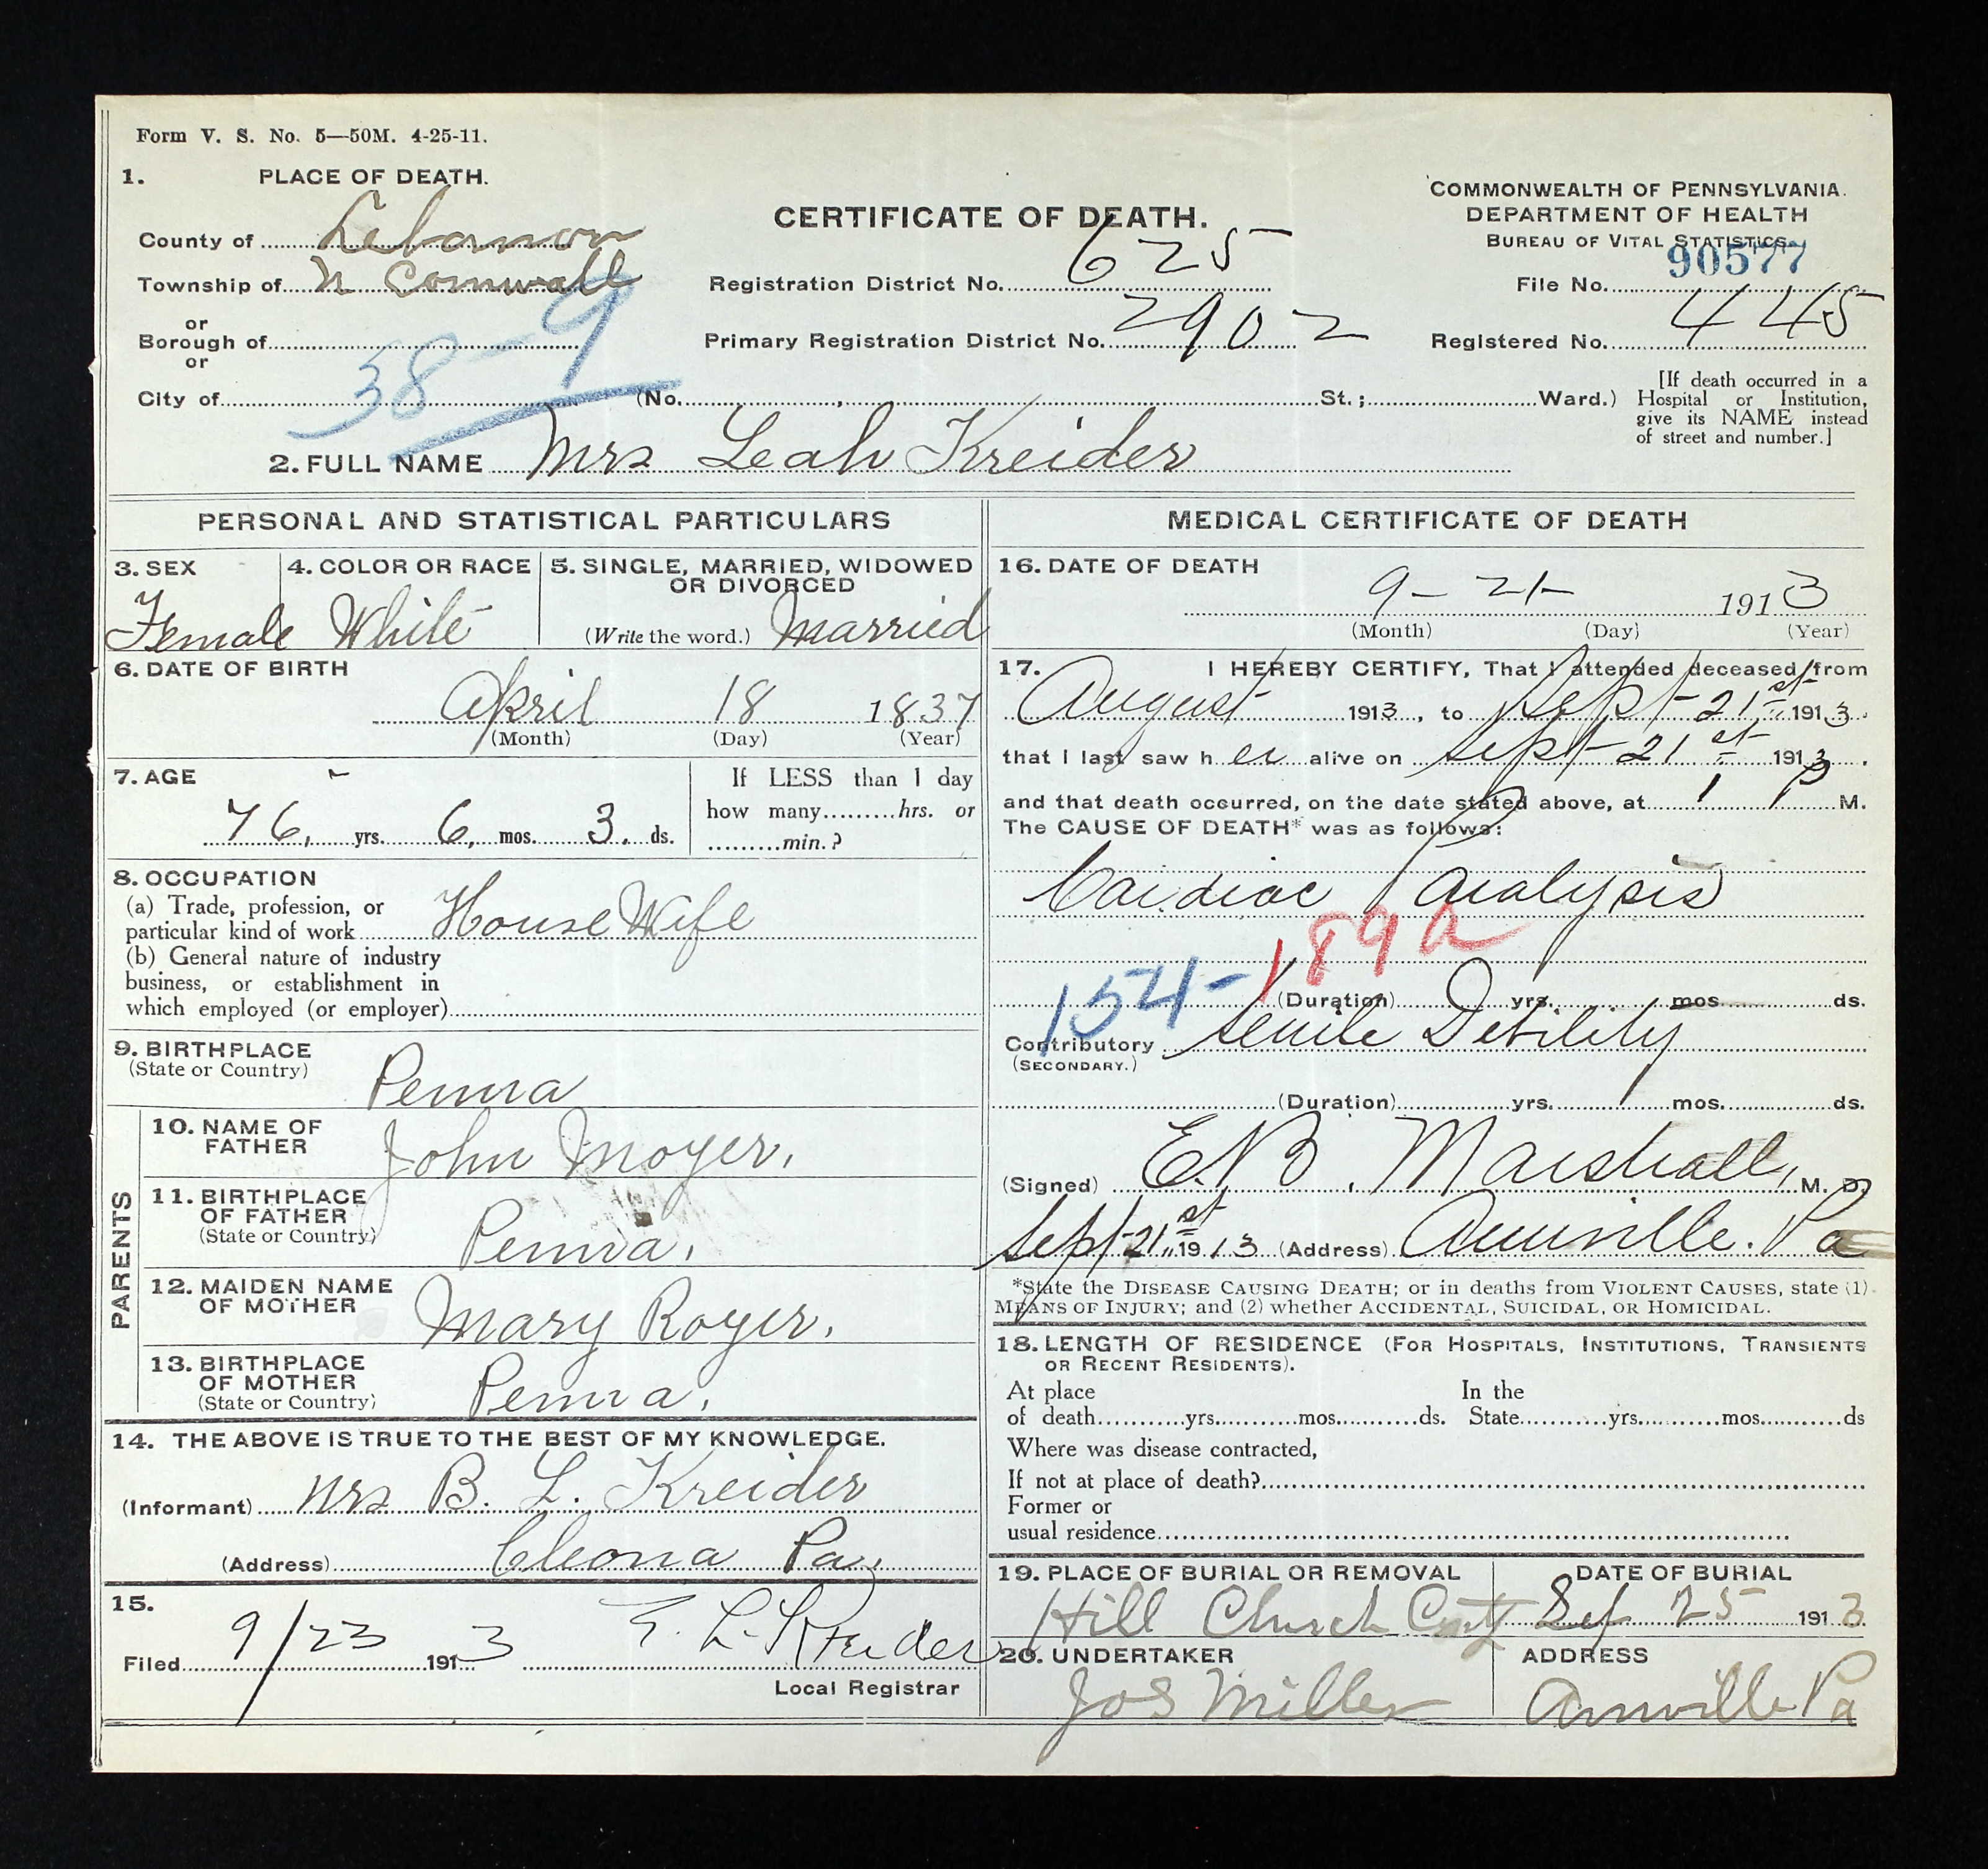 Form V. S. No. 5—50M. 4-25-11.
1. PLACE OF DEATH.
County of Lebanon
Township of N Cornwall
or
Borough of
or
City of
38-9
CERTIFICATE OF DEATH.
Registration District No. 625
Primary Registration District No. 2902
(No. , St.; Ward.)
COMMONWEALTH OF PENNSYLVANIA.
DEPARTMENT OF HEALTH
BUREAU OF VITAL STATISTICS.
90577
File No.
Registered No. 445
[If death occurred in a
Hospital or Institution,
give its NAME instead
of street and number.]
2. FULL NAME Mrs Leah Kreider
PERSONAL AND STATISTICAL PARTICULARS
3. SEX
Female
4. COLOR OR RACE
White
5. SINGLE, MARRIED, WIDOWED
OR DIVORCED
(Write the word.) Married
6. DATE OF BIRTH
April 18 1837
(Month) (Day) (Year)
7. AGE
76, yrs. 6, mos. 3. ds.
If LESS than 1 day
how many hrs. or
min.?
8. OCCUPATION
(a) Trade, profession, or
particular kind of work House Wife
(b) General nature of industry
business, or establishment in
which employed (or employer)
9. BIRTHPLACE
(State or Country)
Penna
PARENTS
10. NAME OF
FATHER
John Moyer,
11. BIRTHPLACE
OF FATHER
(State or Country)
Penna,
12. MAIDEN NAME
OF MOTHER
Mary Royer,
13. BIRTHPLACE
OF MOTHER
(State or Country)
Penna,
14. THE ABOVE IS TRUE TO THE BEST OF MY KNOWLEDGE.
(Informant) Mrs B. L. Kreider
(Address) Cleona Pa,
15.
Filed 9/23 1913 E. L. Kreider
Local Registrar
MEDICAL CERTIFICATE OF DEATH
16. DATE OF DEATH
9- 21- 1913
(Month) (Day) (Year)
17. I HEREBY CERTIFY, That I attended deceased from
August 1913, to Sept 21st 1913.
that I last saw her alive on Sept 21st 1913.
and that death occurred, on the date stated above, at 1 P M.
The CAUSE OF DEATH* was as follows:
Cardiac Paralysis
189a
154-
(Duration) yrs. mos. ds.
Contributory Senile Debility
(SECONDARY.)
(Duration) yrs. mos. ds.
(Signed) E. B. Marshall, M. D.
Sept 21st, 1913 (Address) Annville. Pa
*State the DISEASE CAUSING DEATH; or in deaths from VIOLENT CAUSES, state (1)
MEANS OF INJURY; and (2) whether ACCIDENTAL, SUICIDAL, OR HOMICIDAL.
18. LENGTH OF RESIDENCE (FOR HOSPITALS, INSTITUTIONS, TRANSIENTS
OR RECENT RESIDENTS).
At place In the
of death yrs. mos. ds. State yrs. mos. ds
Where was disease contracted,
If not at place of death?
Former or
usual residence
19. PLACE OF BURIAL OR REMOVAL
Hill Church
DATE OF BURIAL
Sep 25 1913
20. UNDERTAKER
Jos Miller
ADDRESS
Annville Pa